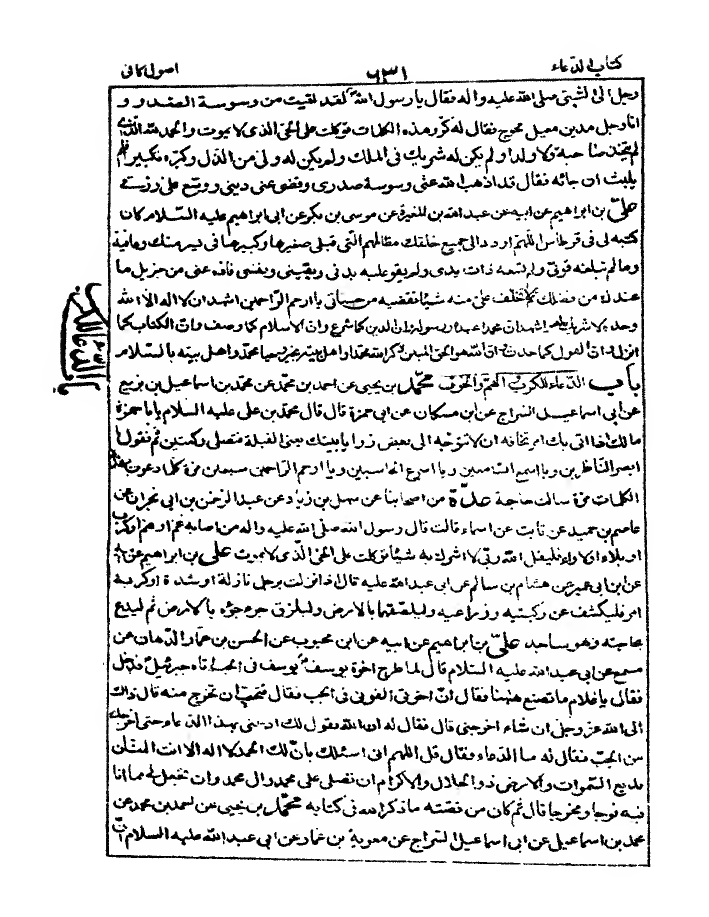 كتاب الدعاء ٦٣١ اصول كافى
رجل الى النبى صلى الله عليه واله فقال يا رسول الله لقد لقيت من وسوسة الصدر و
انا رجل مدين معيل محوج فقال له كرر هذه الكلمات توكلت على الحى الذى لا يموت والحمد لله الذى
لم يتخذ صاحبة ولا ولدا ولم يكن له شريك فى الملك ولم يكن له ولى من الذل وكبره تكبيرا فلم
يلبث ان جائه فقال قد اذهب الله عنى وسوسة صدرى وقضى عنى دينى ووسع على رزقى
على بن ابراهيم عن ابيه عن عبد الله بن المغيرة عن موسى بن بكر عن ابى ابراهيم عليه السلام كان
كتبه لى فى قرطاس اللهم اردد الى جميع خلقك مظالمهم التى قبلى صغيرها وكبيرها فى يسر منك وعافية
وما لم تبلغه قوتى ولم تسعه ذات يدى ولم يقو عليه بدنى ويقينى ونفسى فاده عنى من جزيل ما
عندك من فضلك ثم لا تخلف على منه شيئا تقضيه من حسناتى يا ارحم الراحمين اشهد ان لا اله الا الله
وحده لا شريك له واشهد ان محمدا عبده ورسوله وان الدين كما شرع وان الاسلام كما وصف وان الكتاب كما
انزل وان القول كما حدث وان الله هو الحق المبين ذكر الله محمدا واهل بيته بخير وحيا محمدا واهل بيته بالسلام
باب الدعاء للكرب والهم والخوف محمد بن يحيى عن احمد بن محمد عن محمد بن اسماعيل بن بزيع
عن ابى اسماعيل السراج عن ابن مسكان عن ابى حمزة قال قال محمد بن على عليه السلام يابا حمزة
مالك اذا اتى بك امر تخافه ان لا تتوجه الى بعض زوايا بيتك يعنى القبلة فتصلى ركعتين ثم تقول يا
ابصر الناظرين ويا اسمع السامعين ويا اسرع الحاسبين ويا ارحم الراحمين سبعين مرة كلما دعوت بهذه
الكلمات مرة سالت حاجة عدة من اصحابنا عن سهل بن زياد عن عبد الرحمن بن ابى نجران عن
عاصم بن حميد عن ثابت عن اسماء قالت قال رسول الله صلى الله عليه واله من اصابه هم او غم او كرب
او بلاء او لاواء فليقل الله ربى لا اشرك به شيئا توكلت على الحى الذى لا يموت على بن ابراهيم عن ابيه
عن ابن ابى عمير عن هشام بن سالم عن ابى عبد الله عليه قال اذا نزلت برجل نازلة او شدة او كربه
امر فليكشف عن ركبتيه وذراعيه وليلصقهما بالارض وليلزق جوجوه بالارض ثم ليدع
بحاجته وهو ساجد على بن ابراهيم عن ابيه عن ابن محبوب عن الحسن بن عمار الدهان عن
مسمع عن ابى عبد الله عليه السلام قال لما طرح اخوة يوسف يوسف فى الجب اتاه جبرئيل فدخل
فقال يا غلام ما تصنع هيهنا فقال ان اخوتى القونى فى الجب فقال فتحب ان تخرج منه قال ذاك
الى الله عز وجل ان شاء اخرجنى قال فقال له ان الله يقول لك ادعنى بهذا الدعاء حتى اخرجك
من الجب فقال له ما الدعاء فقال قل اللهم انى اسئلك بان لك الحمد لا اله الا انت المنان
بديع السموات والارض ذو الجلال والاكرام ان تصلى على محمد وال محمد وان تجعل لى مما انا
فيه فرجا ومخرجا قال ثم كان من قصته ما ذكر الله فى كتابه محمد بن يحيى عن احمد بن محمد عن
محمد بن اسماعيل عن ابى اسماعيل السراج عن معوية بن عمار عن ابى عبد الله عليه السلام ان
باب الدعاء للكرب